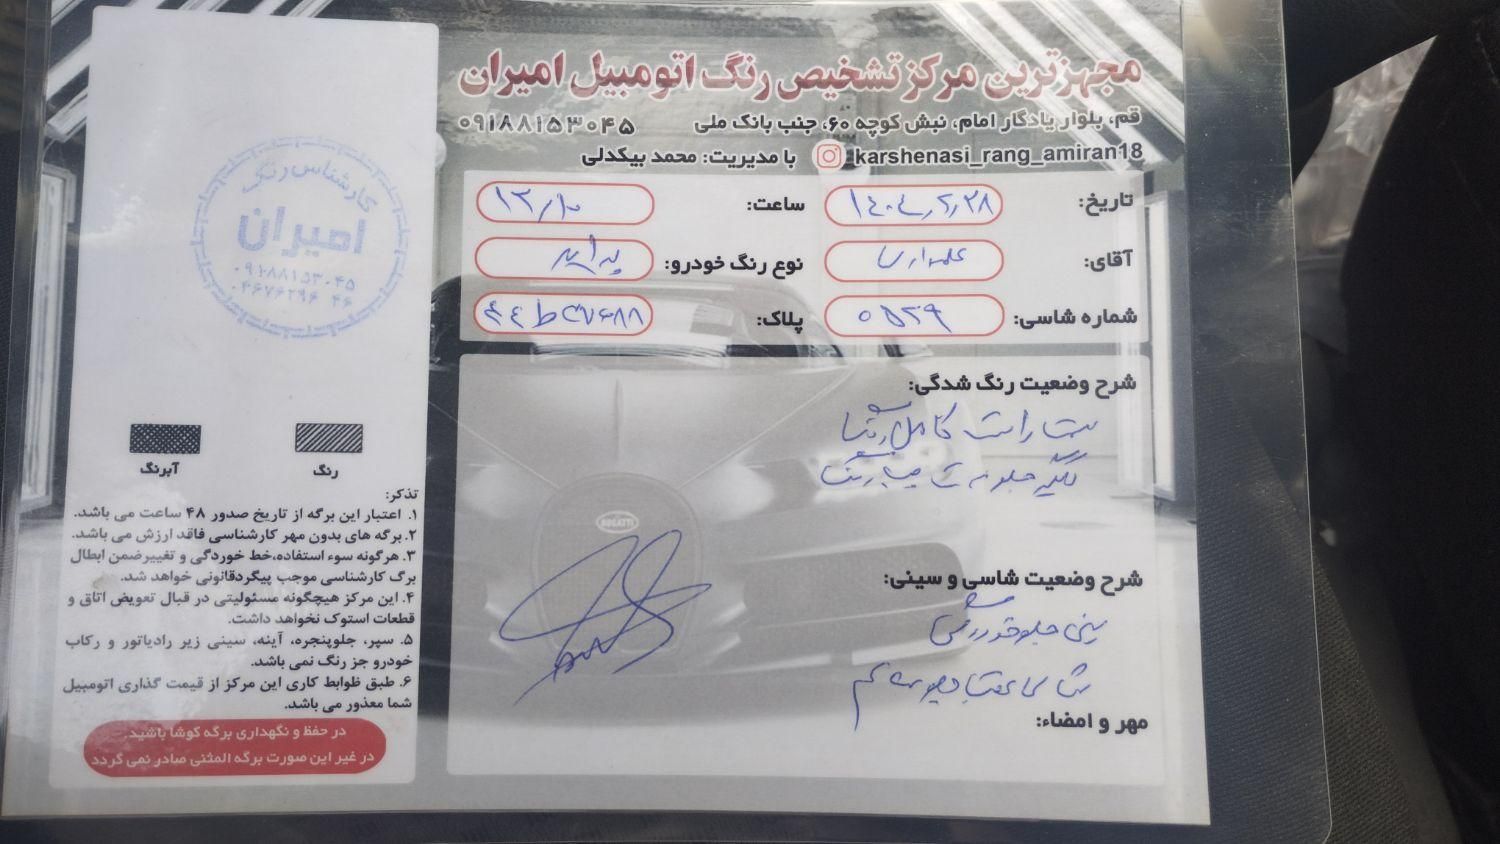 مجهزترین مرکز تشخیص رنگ اتومبیل امیران
قم، بلوار یادگار امام، نبش کوچه ۶۰، جنب بانک ملی ۰۹۱۸۸۱۵۳۰۴۵
karshenasi_rang_amiran18 با مدیریت: محمد بیکدلی
تاریخ: ساعت: ۱۲/۱۰
آقای: نوع رنگ خودرو: پراید
شماره شاسی: پلاک:
شرح وضعیت رنگ شدگی:
سمت راست کامل
گلگیر جلو
شرح وضعیت شاسی و سینی:
سینی جلو
شاسی عقب
مهر و امضاء:
کارشناس رنگ
امیران
۰۹۱۸۸۱۵۳۰۴۵
رنگ
آبرنگ
تذکر:
۱. اعتبار این برگه از تاریخ صدور ۴۸ ساعت می باشد.
۲. برگه های بدون مهر کارشناسی فاقد ارزش می باشد.
۳. هرگونه سوء استفاده،خط خوردگی و تغییرضمن ابطال
برگ کارشناسی موجب پیگردقانونی خواهد شد.
۴. این مرکز هیچگونه مسئولیتی در قبال تعویض اتاق و
قطعات استوک نخواهد داشت.
۵. سپر، جلوپنجره، آینه، سینی زیر رادیاتور و رکاب
خودرو جز رنگ نمی باشد.
۶. طبق ظوابط کاری این مرکز از قیمت گذاری اتومبیل
شما معذور می باشد.
در حفظ و نگهداری برگه کوشا باشید.
در غیر این صورت برگه المثنی صادر نمی گردد
BUGATTI